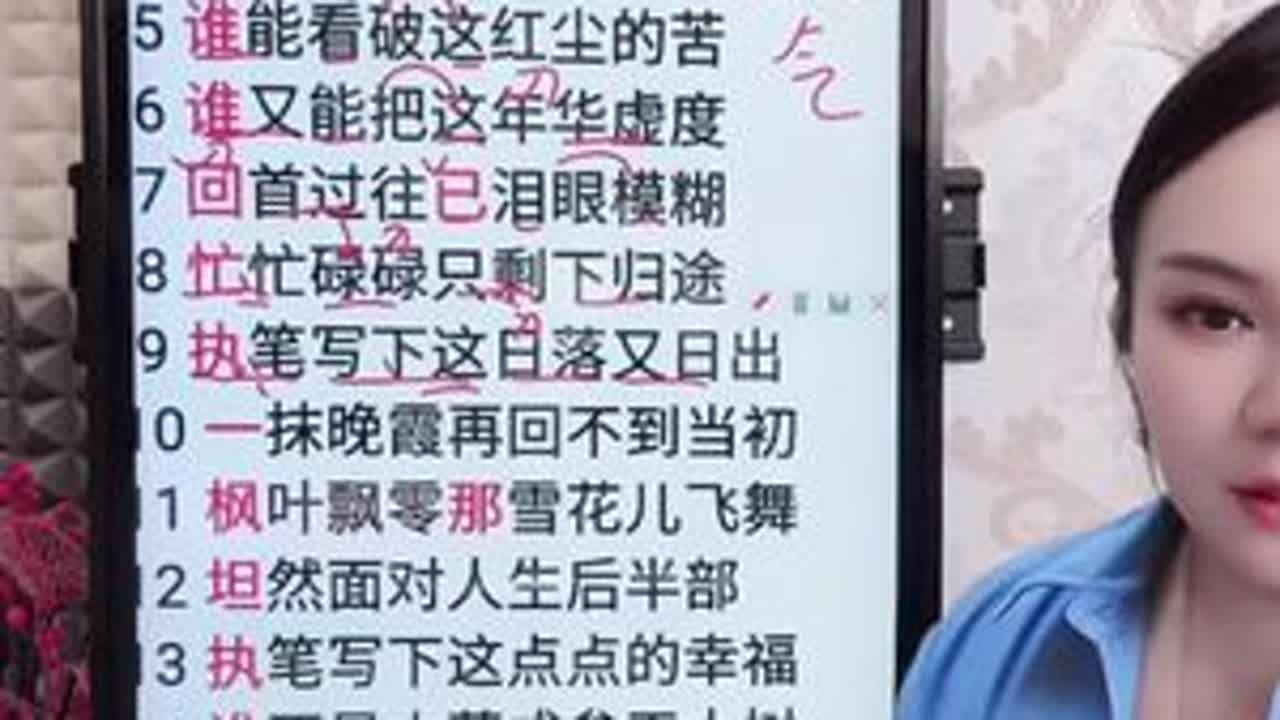 5 谁能看破这红尘的苦
气
6 谁又能把这年华虚度
7 回首过往已泪眼模糊
8 忙忙碌碌只剩下归途
9 执笔写下这日落又日出
10 一抹晚霞再回不到当初
11 枫叶飘零那雪花儿飞舞
12 坦然面对人生后半部
13 执笔写下这点点的幸福